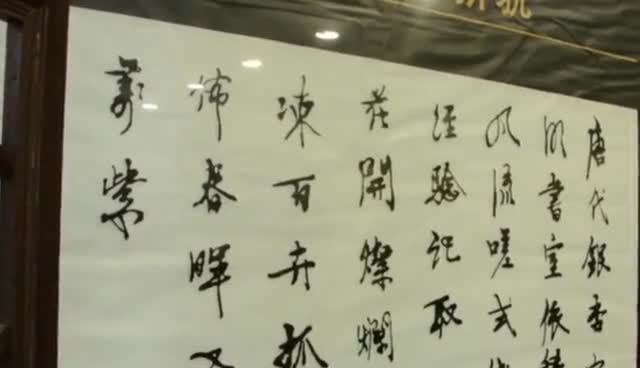 唐代銀杏
明書室依
風流嗟式
經驗記取
花開燦爛
凍百卉抓
佈春暉又
萬紫